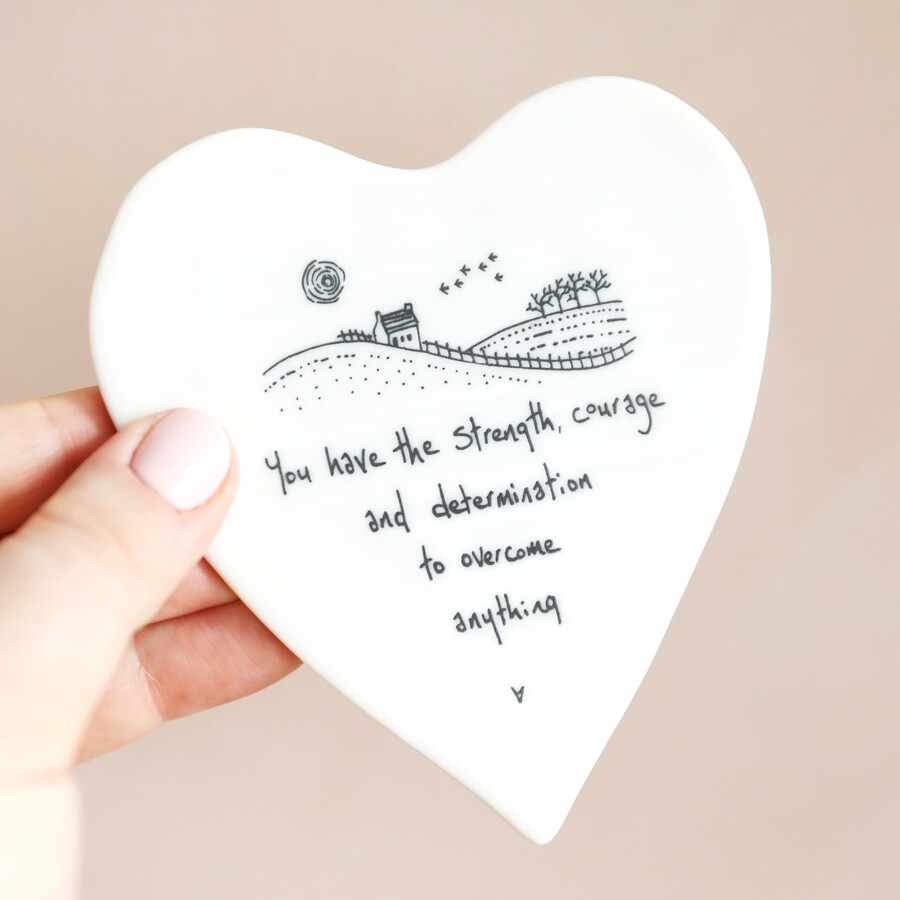 You have the strength, courage
and determination
to overcome
anything